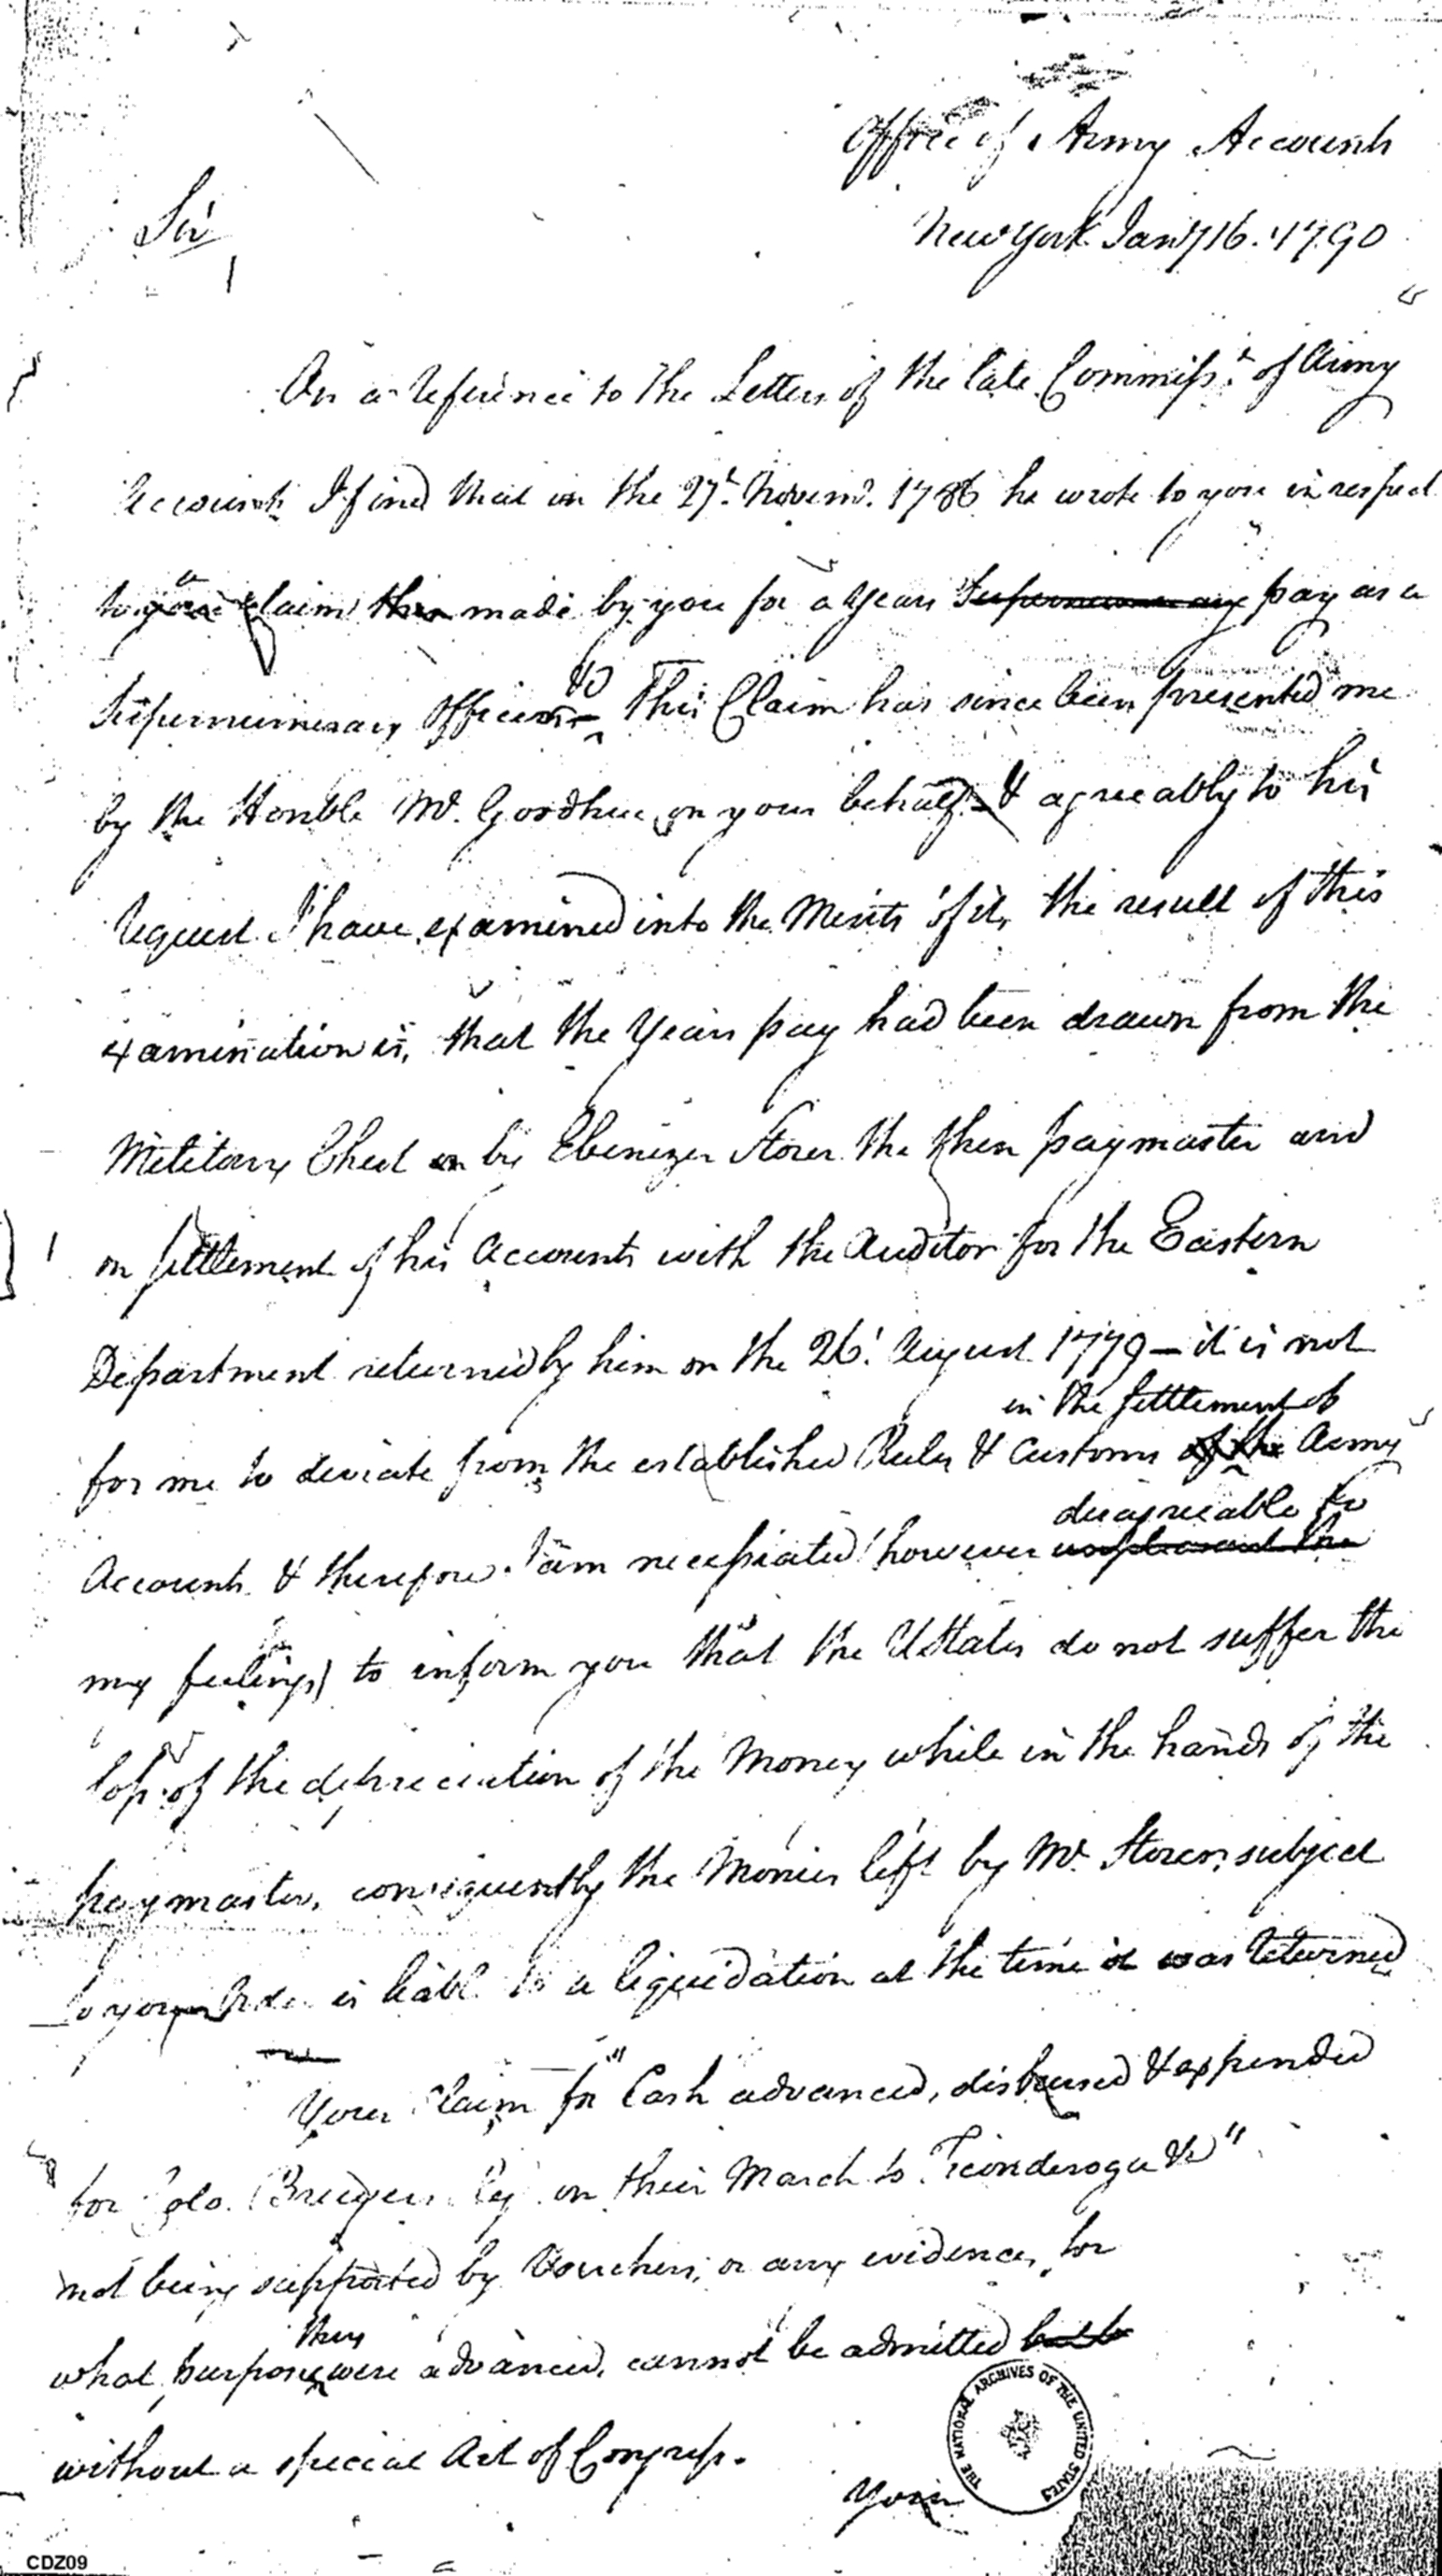 Office of Army Accounts
New York Jany 16. 1790
Sir
On a reference to the Letters of the late Commissr. of Army
Accounts I find that on the 27th. Novemr. 1786 he wrote to you in respect
to your a Claim then made by you for a Years Supernumerary pay as a
Supernumerary Officer This Claim has since been presented me
by the Honble Mr. Goodhue on your behalf & agreeably to his
request I have examined into the Merits of it, the result of this
examination is, that the Years pay had been drawn from the
Military Chest by Ebenezer Storer the then paymaster and
on settlement of his Accounts with the Auditor for the Eastern
Department returned by him on the 26t. August 1779 — it is not
in the settlement of
for me to deviate from the established Rules & Customs of the Army
disagreeable to
Accounts & therefore I am necessiated (however unpleasant the
my feelings) to inform you that the UStates do not suffer the
loss of the depreciation of the Money while in the hands of the
paymaster, consequently the Monies left by Mr. Storer, subject
to your Order is liable to a liquidation at the time it was returned
Your Claim for "Cash advanced, disbursed & expended
for Colo. Brewers Reg on their March to Ticonderoga &c"
not being supported by Vouchers, or any evidence, for
they
what purpose were advanced, cannot be admitted but by
without a special Act of Congress.
Your
THE NATIONAL ARCHIVES OF THE UNITED STATES
CDZ09